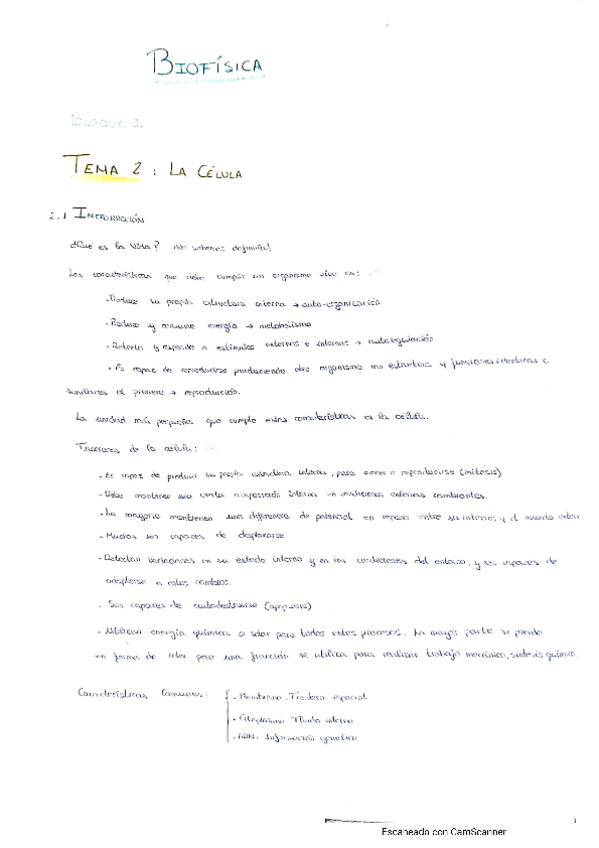 BIOFÍSICA
BLOQUE I
TEMA 2 : LA CÉLULA
2.1 INTRODUCCIÓN
¿Qué es la vida? ¡No sabemos definirla!
Las características que debe cumplir un organismo vivo son:
· Produce su propia estructura interna → auto-organización
· Produce y consume energía → metabolismo
· Detecta y responde a estímulos externos e internos → autorregulación
· Es capaz de reproducirse produciendo otro organismo con estructura y funciones idénticas o
similares al primero → reproducción.
La unidad más pequeña que cumple estas características es la célula.
Funciones de la célula:
· Es capaz de producir su propia estructura interna, para crecer o reproducirse (mitosis)
· Debe mantener una cierta composición interna en condiciones externas cambiantes.
· La mayoría mantienen una diferencia de potencial en reposo entre su interior y el mundo exterior
· Muchas son capaces de desplazarse
· Detectan variaciones en su estado interno y en las condiciones del entorno, y son capaces de
adaptarse a estos cambios.
· Son capaces de autodestruirse (apoptosis)
· Utilizan energía química o solar para todos estos procesos. La mayor parte se pierde
en forma de calor pero una fracción se utiliza para realizar trabajo mecánico, síntesis química.
Características Comunes:
· Membrana. Frontera espacial
· Citoplasma. Fluido interno
· ADN. Información genética
1
Escaneado con CamScanner